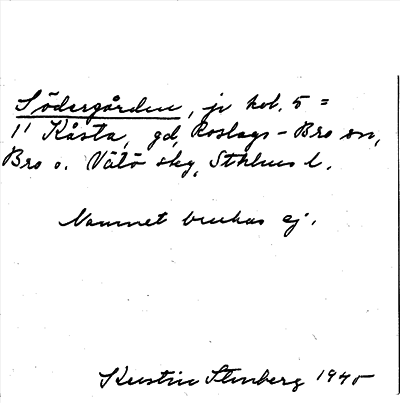 Södergården, jr kol. 5 =
1¹ Kåsta, gd, Roslags-Bro sn,
Bro o. Vätö skg, Sthlms l.
Namnet brukas ej.
Kerstin Stenberg 1945